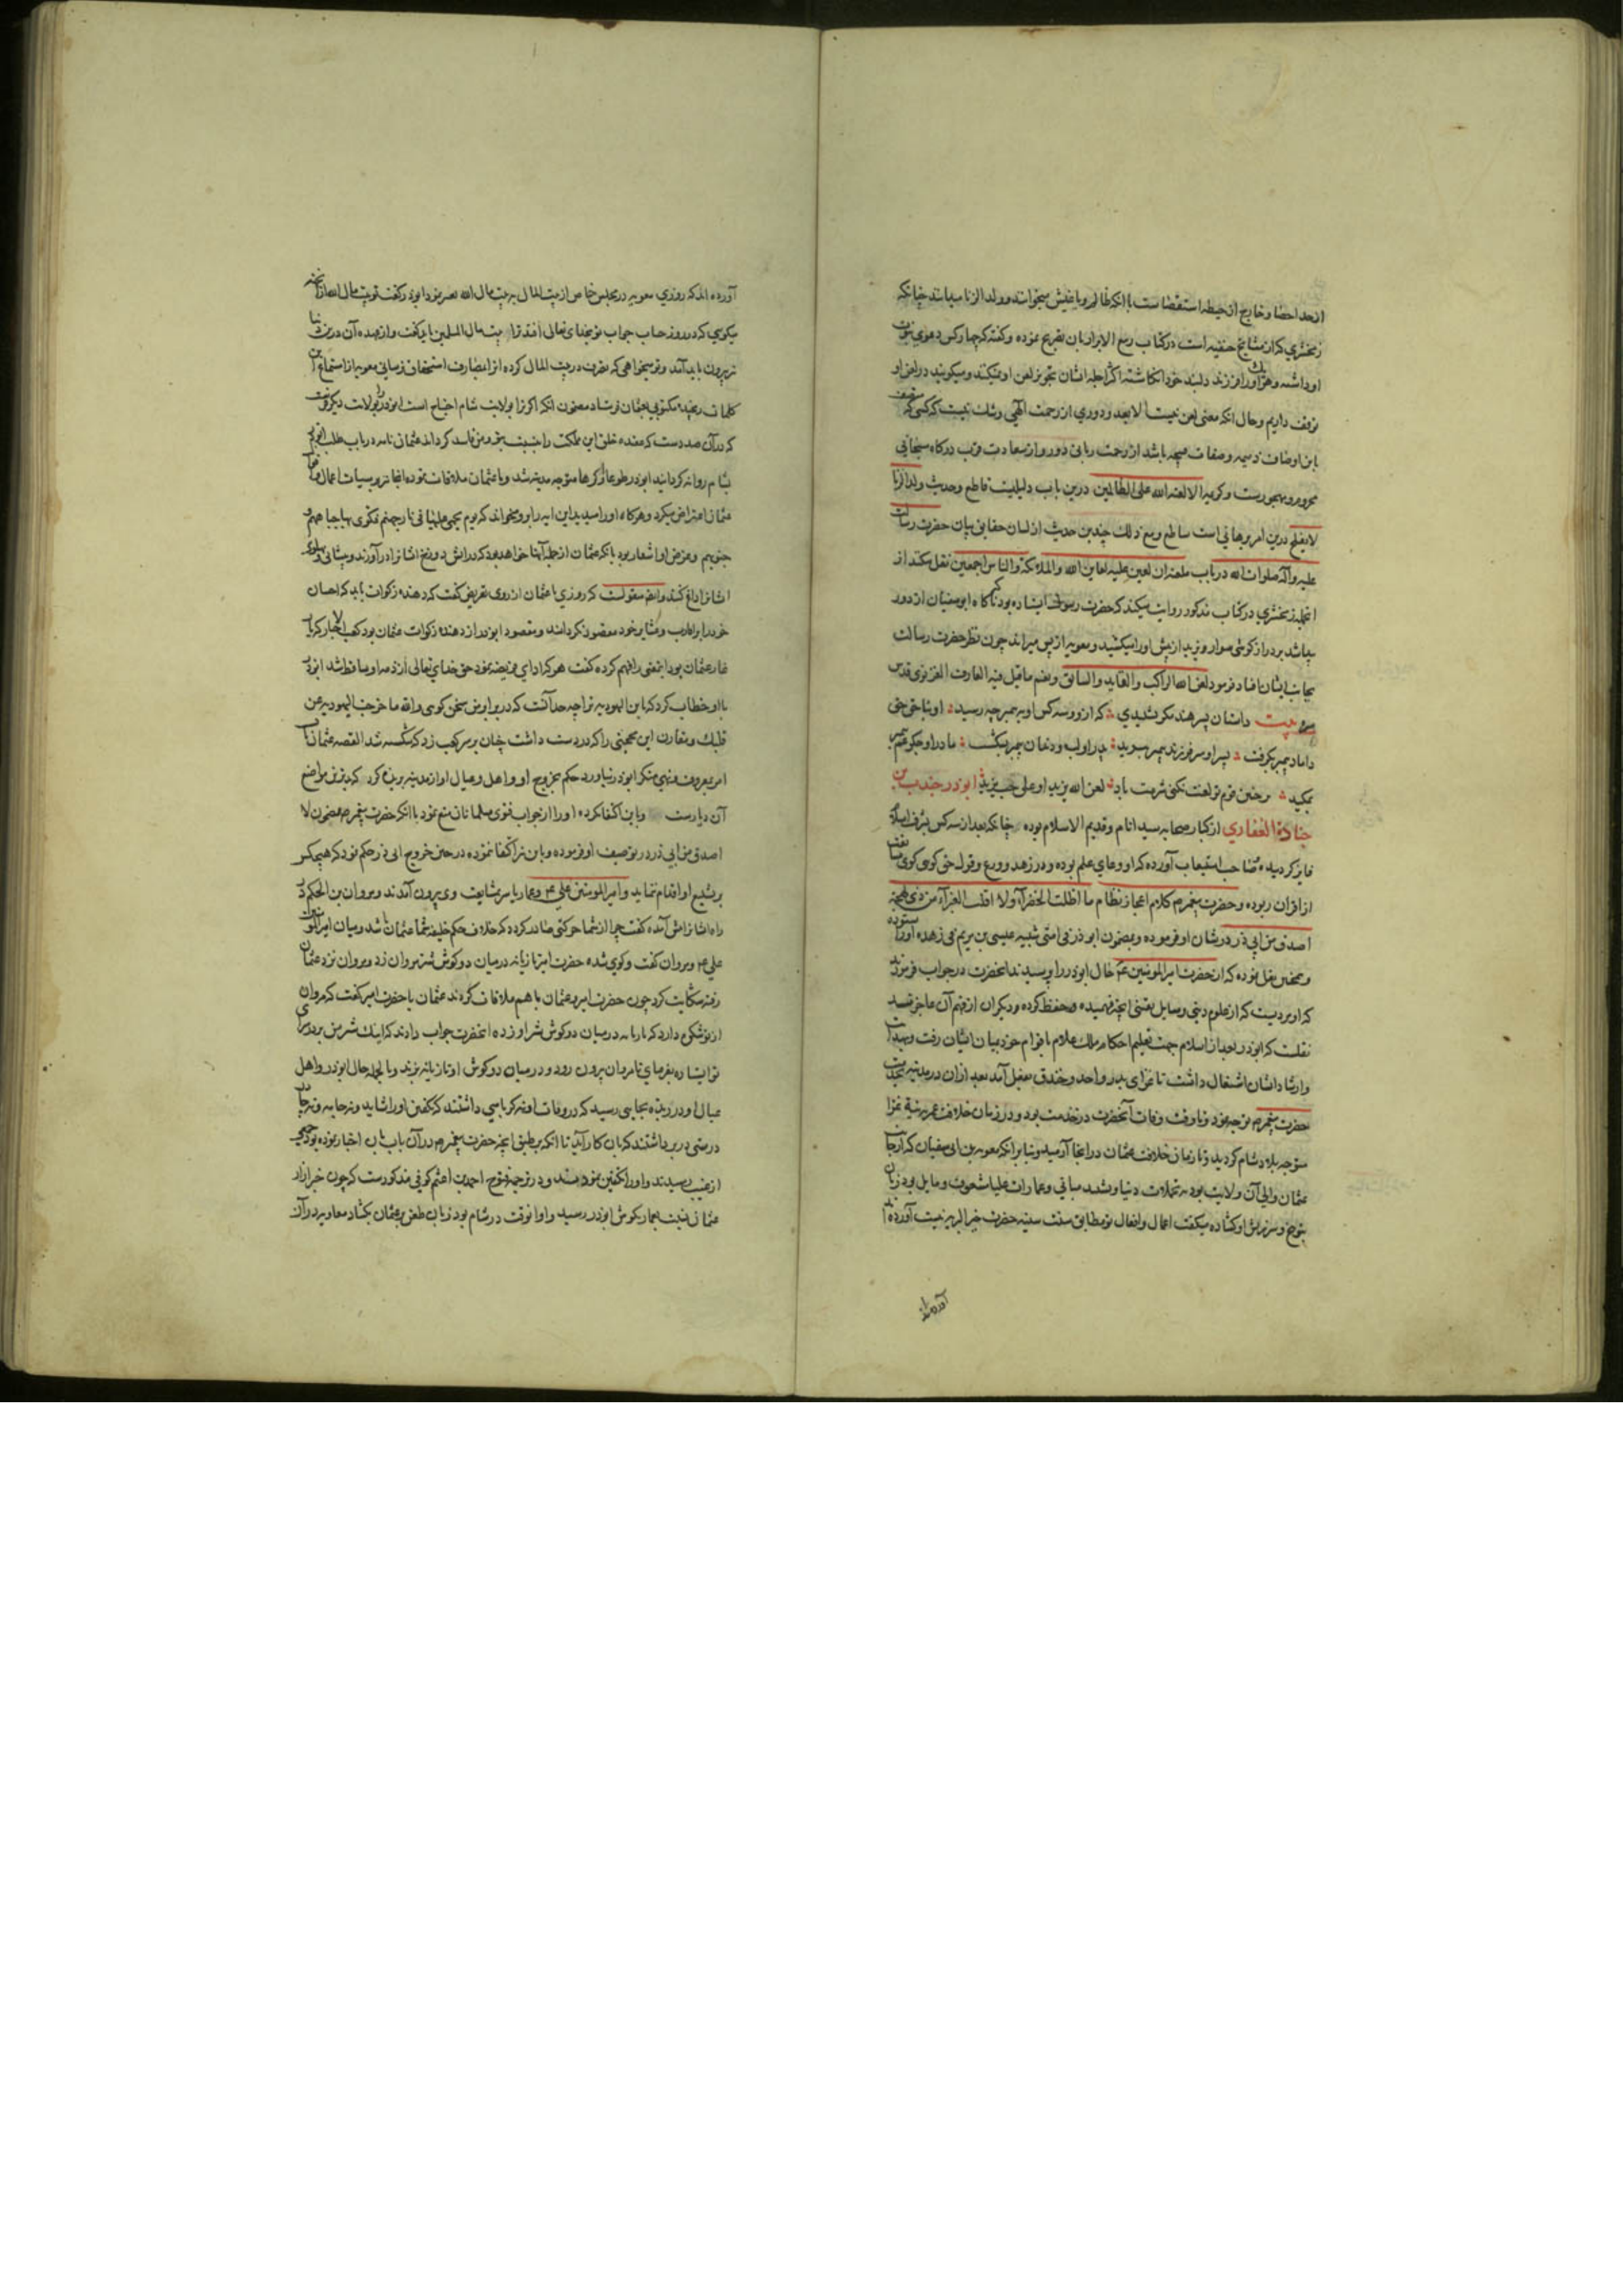 از حد احصا و خارج از حیطه استقصاست با انکه ظالم و باغیش میخوانند و ولد الزنا میدانند چنانکه
زمخشری که از مشایخ حنفیه است در کتاب ربیع الابرار بان تصریح نموده و کفته که چهار کس دعوی
او داشته و هر یک او را فرزند دلبند خود انکاشته اکثر اجله ایشان تجویز لعن او نمیکنند و میکویند در لعن او
توقف داریم و حال انکه معنی لعن نیست الا بعد و دوری از رحمت الهی و شک نیست که کسی که
باین اوصاف ذمیمه و صفات قبیحه باشد از رحمت ربانی دور و از سعادت قرب درکاه سبحانی
محروم و مهجورست و کریمه الا لعنه الله علی الظالمین درین باب دلیلیست قاطع و حدیث ولد الزنا
لا یفلح درین امر برهانی است ساطع و مع ذلک چندین حدیث از لسان حقایق بیان حضرت رسالت
علیه و آله صلوات الله در باب لعین علیه لعاین الله و الملائکة و الناس اجمعین نقل میکنند از
انجمله زمخشری در کتاب مذکور روایت میکند که حضرت رسول ایستاده بود که ناکاه ابوسفیان از دور
پیدا شد بر دراز کوشی سوار و یزید از پیش او را میکشید و معویه از پس میراند چون نظر حضرت رسالت
بجانب ایشان افتاد فرمود لعن الله الراکب و القاید و السایق و نعم ما قیل فیه العارف الغزنوی قدس
سره بیت داستان پسر هند مکر نشنیدی که ازو و سه کس او به پیمبر چه رسید او بناحق حق
داماد پیمبر بکرفت پسر او سر فرزند پیمبر ببرید پدر او لب و دندان پیمبر بشکست مادر او جکر عم پیمبر
بمکید بر چنین قوم تو لعنت نکنی شرمت باد لعن الله یزید او علی حب یزید ابوذر جندب بن
جنادة الغفاری از کبار صحابه سید انام و قدیم الاسلام بوده چنانکه بعد از سه کس بشرف اسلام
فایز کردیده صاحب استیعاب آورده که او وعای علم بوده و در زهد و ورع و قول حق کوی
از اقران ربوده و حضرت پیغمبر م کلام اعجاز نظام ما اظلت الخضرآء ولا اقلت الغبرآء من ذی لهجة
اصدق من ابی ذر در شان او فرموده و بمضمون ابوذر فی امتی شبیه عیسی بن مریم فی زهده او را ستوده
و همچنین نقل نموده که از حضرت امیر المومنین ع حال ابوذر را پرسیدند انحضرت در جواب فرمود
که او مردیست که از علوم دینی و مسایل یقینی انچه فهمیده حفظ کرده و دیکران از فهم آن عاجز شدند
نقلست که ابوذر بعد از اسلام جهت تعلیم احکام ملک علام باقوام خود میان ایشان رفت و بهدایت
و ارشاد ایشان اشتغال داشت تا غزای بدر و احد و خندق بفعل آمد بعد ازان در مدینه بخدمت
حضرت پیغمبر م توجه نمود و تا وقت وفات آنحضرت در خدمت بود و در زمان خلافت عمر به نیة غزا
متوجه بلاد شام کردید و تا زمان خلافت عثمان در انجا آرمید و بنا بر انکه معویه بن ابی سفیان که از جانب
عثمان والی آن ولایت بود به تجملات دنیا و تشید مبانی و عمارات علیا مشعوف و مایل بود زبان
بتوبیخ و سرزنش او کشاده میکفت اعمال و افعال تو مطابق سنت سنیه حضرت خیر البریه نیست آورده اند
آورده اند
آورده اند که روزی معویه در مجلس خاص از بیت المال به بیت مال الله تعبیر نمود ابوذر کفت تو بیت مال الله ازان
میکویی که در روز حساب جواب تو بخدای تعالی افتد ترا بیت مال المسلمین باید کفت و از عهده آن درین دنیا
بیرون باید آمد و تو میخواهی که تصرف در بیت المال کرده معویه از استماع این
کلمات رنجیده مکتوبی بعثمان فرستاد مضمون انکه اکر ترا بولایت شام احتیاج است ابوذر را بولایت دیکر فرست
که در آن صددست که عقیده خلق این مملکت را نسبت بتو و من فاسد کرداند عثمان نامه در باب طلب ابوذر
بشام روانه کردانید ابوذر طوعا و کرها متوجه مدینه شد و با عثمان ملاقات نموده انجا نیز بر سیات اعمال و افعال
عثمان اعتراض میکرد و هرکاه او را میدید این ایه را برو میخواند که یوم یحمی علیها فی نار جهنم فتکوی بها جباههم و
جنوبهم و غرض او اشعار بود بانکه عثمان از جمله آنها خواهد بود که در آتش دوزخ ایشانرا در آورند و پیشانی و پهلوی
ایشانرا داغ کنند و ایضا منقولست که روزی با عثمان از روی تعریض کفت که دهنده زکوات باید که احسان
خود را بر اقارب و عشایر خود مقصور نکرداند و مقصود ابوذر از دهنده زکوات عثمان بود کعب الاحبار که یار
غار عثمان بود اینمعنی را فهم کرده کفت هر که ادای فریضه نمود حق خدای تعالی از ذمه او ساقط شد ابوذر
با او خطاب کرد که یا ابن الیهودیه ترا چه حد آنست که در برابر من سخن کویی والله ما خرجت الیهودیه عن
قلبک و مقارن این محجنی را که در دست داشت چنان بر سر کعب زد که شکسته شد القصه عثمان تاب
امر بمعروف و نهی منکر ابوذر نیاورد حکم بخروج او و اهل و عیال او از مدینه بربذه کرد که بدترین مواضع
آن دیارست و باین اکتفا نکرده او را از جواب فتوی مسلمانان منع نمود با انکه حضرت پیغمبر م مضمون لا
اصدق من ابی ذر در توصیف او فرموده و بان نیز اکتفا ننموده در حین خروج ابی ذر حکم نمود که هیچکس
بتشییع او اقدام ننماید و امیر المومنین علی ع و عمار یاسر بمشایعت وی بیرون آمدند و مروان بن الحکم در
راه ایشانرا پیش آمده کفت چرا از شما حرکتی صادر کردد که خلاف حکم خلیفه شما عثمان باشد و میان امیر المومنین
علی ع و مروان کفت و کوی شده حضرت امیر تازیانه درمیان دو کوش شتر مروان زد و مروان نزد عثمان
رفته شکایت کرد چون حضرت امیر و عثمان با هم ملاقات کردند عثمان با حضرت امیر کفت که مروان
از تو شکوه دارد که تازیانه درمیان دو کوش شتر او زده انحضرت جواب دادند که اینک شتر من بر در سرای
تو ایستاده بفرمای تا مروان بیرون رود و درمیان دو کوش او تازیانه بزند و بالجمله حال ابوذر و اهل
عیال او در ربذه بجایی رسید که در وفات او نه کرباسی داشتند که کفن او را شاید و نه جامه
درستی در بر داشتند که بان کار آید تا انکه بر طبق انچه حضرت پیغمبر م در آن باب بان اخبار نموده بود جمعی
از غیب رسیدند و او را تکفین نمودند و در ترجمه فتوح احمد بن اعثم کوفی مذکورست که چون خبر ازار
عثمان نسبت بعمار بکوش ابوذر رسید و او انوقت در شام بود زبان طعن بر عثمان بکشاد معاویه در آن